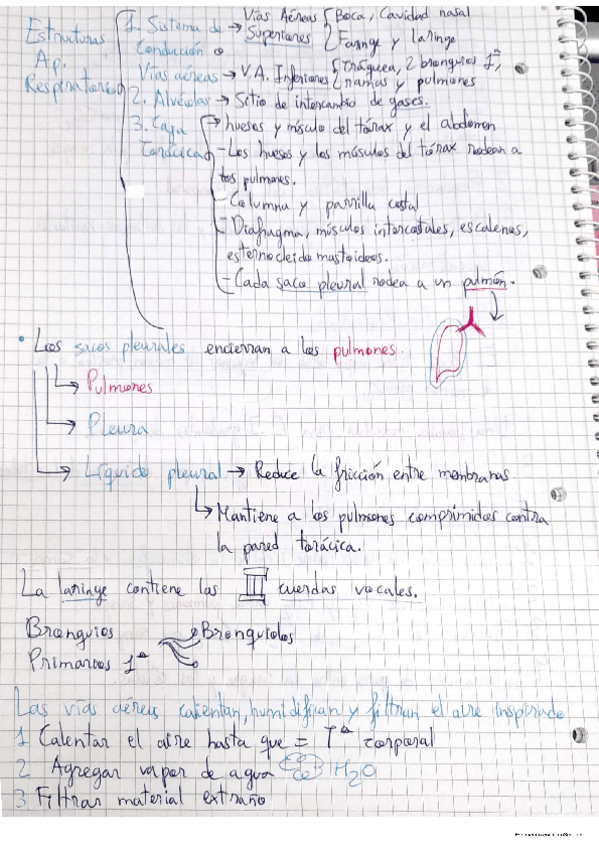 Estructuras Ap. Respiratorio
1. Sistema de Conducción o Vías aéreas → Vías Aéreas Superiores { Boca, Cavidad nasal
Faringe y laringe
→ V.A. Inferiores { tráquea, 2 bronquios 1º,
ramas y pulmones
2. Alvéolos → Sitio de intercambio de gases.
3. Caja Torácica → huesos y músculo del tórax y el abdomen
- Los huesos y los músculos del tórax rodean a
los pulmones.
- Columna y parrilla costal
- Diafragma, músculos intercostales, escalenos,
esternocleidomastoideos.
- Cada saco pleural rodea a un pulmón.
• Los sacos pleurales encierran a los pulmones.
→ Pulmones
→ Pleura
→ Líquido pleural → Reduce la fricción entre membranas
→ Mantiene a los pulmones comprimidos contra
la pared torácica.
La laringe contiene las cuerdas vocales.
Bronquios Bronquiolos
Primarios 1º
Las vías aéreas calientan, humidifican y filtran el aire inspirado
1 Calentar el aire hasta que = Tª corporal
2 Agregar vapor de agua H2O
3 Filtrar material extraño